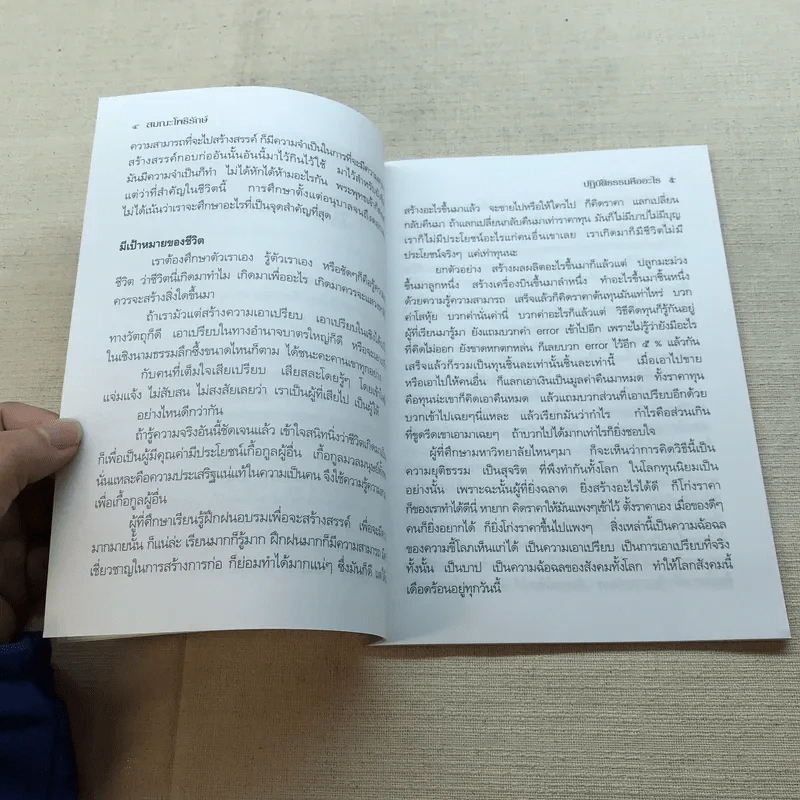 ๔ สมณะโพธิรักษ์
ความสามารถที่จะไปสร้างสรรค์ ก็มีความจำเป็นในการที่จะมีความ
สร้างสรรค์กอบก่ออันนั้นอันนี้มาไว้กินไว้ใช้ มาไว้สำหรับ
มันมีความจำเป็นก็ทำ ไม่ได้หักได้ห้ามอะไรกัน พระพุทธเจ้า
แต่ว่าที่สำคัญในชีวิตนี้ การศึกษาตั้งแต่อนุบาลจนถึง
ไม่ได้เน้นว่าเราจะศึกษาอะไรที่เป็นจุดสำคัญที่สุด
มีเป้าหมายของชีวิต
เราต้องศึกษาตัวเราเอง รู้ตัวเราเอง หรือชัดๆก็คือรู้
ชีวิต ว่าชีวิตนี่เกิดมาทำไม เกิดมาเพื่ออะไร เกิดมาควรจะ
ควรจะสร้างสิ่งใดขึ้นมา
ถ้าเรามัวแต่สร้างความเอาเปรียบ เอาเปรียบใน
ทางวัตถุก็ดี เอาเปรียบในทางอำนาจบาตรใหญ่ก็ดี หรือจะ
ในเชิงนามธรรมลึกซึ้งขนาดไหนก็ตาม ได้ชนะคะคานเขาทุกอย่าง
กับคนที่เต็มใจเสียเปรียบ เสียสละโดยรู้ๆ โดย
แจ่มแจ้ง ไม่สับสน ไม่สงสัยเลยว่า เราเป็นผู้ที่เสียไป เป็นผู้ให้
อย่างไหนดีกว่ากัน
ถ้ารู้ความจริงอันนี้ชัดเจนแล้ว เข้าใจสนิทนิ่งว่าชีวิตเกิดมา
ก็เพื่อเป็นผู้มีคุณค่ามีประโยชน์เกื้อกูลผู้อื่น เกื้อกูลมวลมนุษย์
นั่นแหละคือความประเสริฐแน่แท้ในความเป็นคน จึงใช้ความรู้ความ
เพื่อเกื้อกูลผู้อื่น
ผู้ที่ศึกษาเรียนรู้ฝึกฝนอบรมเพื่อจะสร้างสรรค์ เพื่อจะมี
มากมายนั้น ก็แน่ล่ะ เรียนมากก็รู้มาก ฝึกฝนมากก็มีความสามารถ
เชี่ยวชาญในการสร้างการก่อ ก็ย่อมทำได้มากแน่ๆ ซึ่งมันก็ดี
ปฏิบัติธรรมคืออะไร ๕
สร้างอะไรขึ้นมาแล้ว จะขายไปหรือให้ใครไป ก็คิดราคา แลกเปลี่ยน
กลับคืนมา ถ้าแลกเปลี่ยนกลับคืนมาเท่าราคาทุน มันก็ไม่มีบาปไม่มีบุญ
เราก็ไม่มีประโยชน์อะไรแก่คนอื่นเขาเลย เราเกิดมาก็มีชีวิตไม่มี
ประโยชน์จริงๆ แค่เท่าทุนนะ
ยกตัวอย่าง สร้างผลผลิตอะไรขึ้นมาก็แล้วแต่ ปลูกมะม่วง
ขึ้นมาลูกหนึ่ง สร้างเครื่องบินขึ้นมาลำหนึ่ง ทำอะไรขึ้นมาชิ้นหนึ่ง
ด้วยความรู้ความสามารถ เสร็จแล้วก็คิดราคาต้นทุนมันเท่าไหร่ บวก
ค่าโสหุ้ย บวกค่านั่น บวกค่านี่ บวกค่าอะไรก็แล้วแต่ วิธีคิดทุนก็รู้กันอยู่
ผู้ที่เรียนมารู้มา ยังแถมบวกค่า error เข้าไปอีก เพราะไม่รู้ว่ายังมีอะไร
ที่คิดไม่ออก ยังขาดหกตกหล่น ก็เลยบวก error ไว้อีก ๕ % แล้วกัน
เสร็จแล้วก็รวมเป็นทุนชิ้นละเท่านั้นชิ้นละเท่านี้ เมื่อเอาไปขาย
หรือเอาไปให้คนอื่น ก็แลกเอาเงินเป็นมูลค่าคืนมาหมด ทั้งราคาทุน
คือทุนน่ะเขาก็คิดเอาคืนหมด แล้วแถมบวกส่วนที่เอาเปรียบอีกด้วย
บวกเข้าไปเฉยๆนี่แหละ แล้วเรียกมันว่ากำไร กำไรคือส่วนเกิน
ที่ขูดรีดเขาเอามาเฉยๆ ถ้าบวกไปได้มากเท่าไรก็ยิ่งชอบใจ
ผู้ที่ศึกษามหาวิทยาลัยไหนๆมา ก็จะเห็นว่าการคิดวิธีนี้เป็น
ความยุติธรรม เป็นสุจริต ที่พึงทำกันทั้งโลก ในโลกทุนนิยมเป็น
อย่างนั้น เพราะฉะนั้นผู้ที่ยิ่งฉลาด ยิ่งสร้างอะไรได้ดี ก็โก่งราคา
ก็ของเราทำได้ดีนี่ หายาก คิดราคาให้มันแพงๆเข้าไว้ ตั้งราคาเอง เมื่อของดีๆ
คนก็ยิ่งอยากได้ ก็ยิ่งโก่งราคาขึ้นไปแพงๆ สิ่งเหล่านี้เป็นความฉ้อฉล
ของความขี้โลภเห็นแก่ได้ เป็นความเอาเปรียบ เป็นการเอาเปรียบที่จริง
ทั้งนั้น เป็นบาป เป็นความฉ้อฉลของสังคมทั้งโลก ทำให้โลกสังคมนี้
เดือดร้อนอยู่ทุกวันนี้